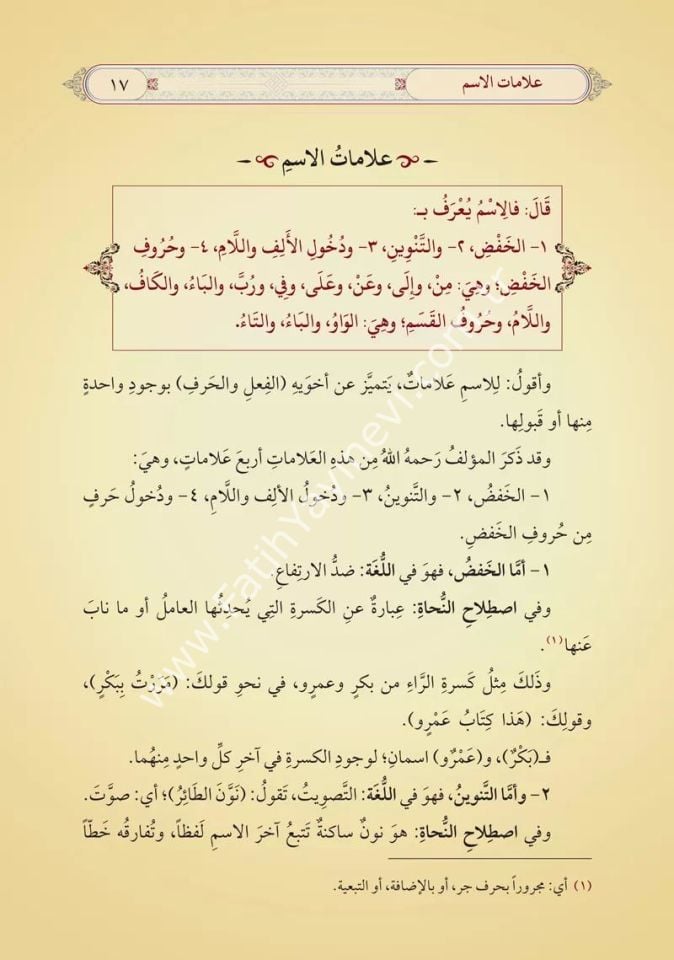 علامات الاسم
١٧
علاماتُ الاسمِ
قَالَ: فالِاسْمُ يُعْرَفُ بـ:
١- الخَفْضِ، ٢- والتَّنْوِينِ، ٣- ودُخُولِ الأَلِفِ واللَّامِ، ٤- وحُرُوفِ
الخَفْضِ؛ وهِيَ: مِنْ، وإِلَى، وعَنْ، وعَلَى، وفِي، ورُبَّ، والبَاءُ، والكَافُ،
واللَّامُ، وحُرُوفُ القَسَمِ؛ وهِيَ: الوَاوُ، والبَاءُ، والتَاءُ.
وأقولُ: لِلاسمِ عَلاماتٌ، يَتميَّز عن أخوَيهِ (الفِعلِ والحَرفِ) بوجودِ واحدةٍ
مِنها أو قَبولِها.
وقد ذَكرَ المؤلفُ رَحمهُ اللهُ مِن هذِه العَلاماتِ أربعَ عَلاماتٍ، وهيَ:
١- الخَفضُ، ٢- والتَّنوينُ، ٣- ودُخولُ الألِفِ واللَّامِ، ٤- ودُخولُ حَرفٍ
مِن حُروفِ الخَفضِ.
١- أمَّا الخَفضُ، فهوَ في اللُّغَة: ضدُّ الارتِفاعِ.
وفي اصطِلاحِ النُّحاةِ: عِبارةٌ عنِ الكَسرةِ التِي يُحدِثُها العاملُ أو ما نابَ
عَنها(١).
وذَلكَ مِثلُ كَسرةِ الرَّاءِ من بكرٍ وعمرٍو، في نحوِ قولكَ: (مَرَرْتُ بِبَكْرٍ)،
وقولِكَ: (هَذا كِتَابُ عَمْرٍو).
فـ(بَكْرٌ)، و(عَمْرٌو) اسمانِ؛ لوجودِ الكسرةِ في آخرِ كلِّ واحدٍ مِنهُما.
٢- وأمَّا التَّنوينُ، فهوَ في اللُّغة: التَّصويتُ، تَقولُ: (نَوَّنَ الطَائِرُ)؛ أي: صوَّتَ.
وفي اصطِلاحِ النُّحاةِ: هو نونٌ ساكنةٌ تَتبعُ آخرَ الاسمِ لَفظاً، وتُفارقُه خَطّاً
(١) أي: مجروراً بحرف جر، أو بالإضافة، أو التبعية.
www.FatihYayinevi.com.tr